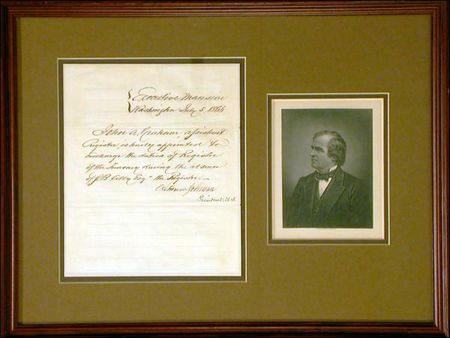 Executive Mansion
Washington July 5, 186
John A. Graham assistant
Register is hereby appointed to
discharge the duties of Register
of the Treasury during the absence
of S. B. Colby Esqr. the Register.
Andrew Johnson
President, U.S.